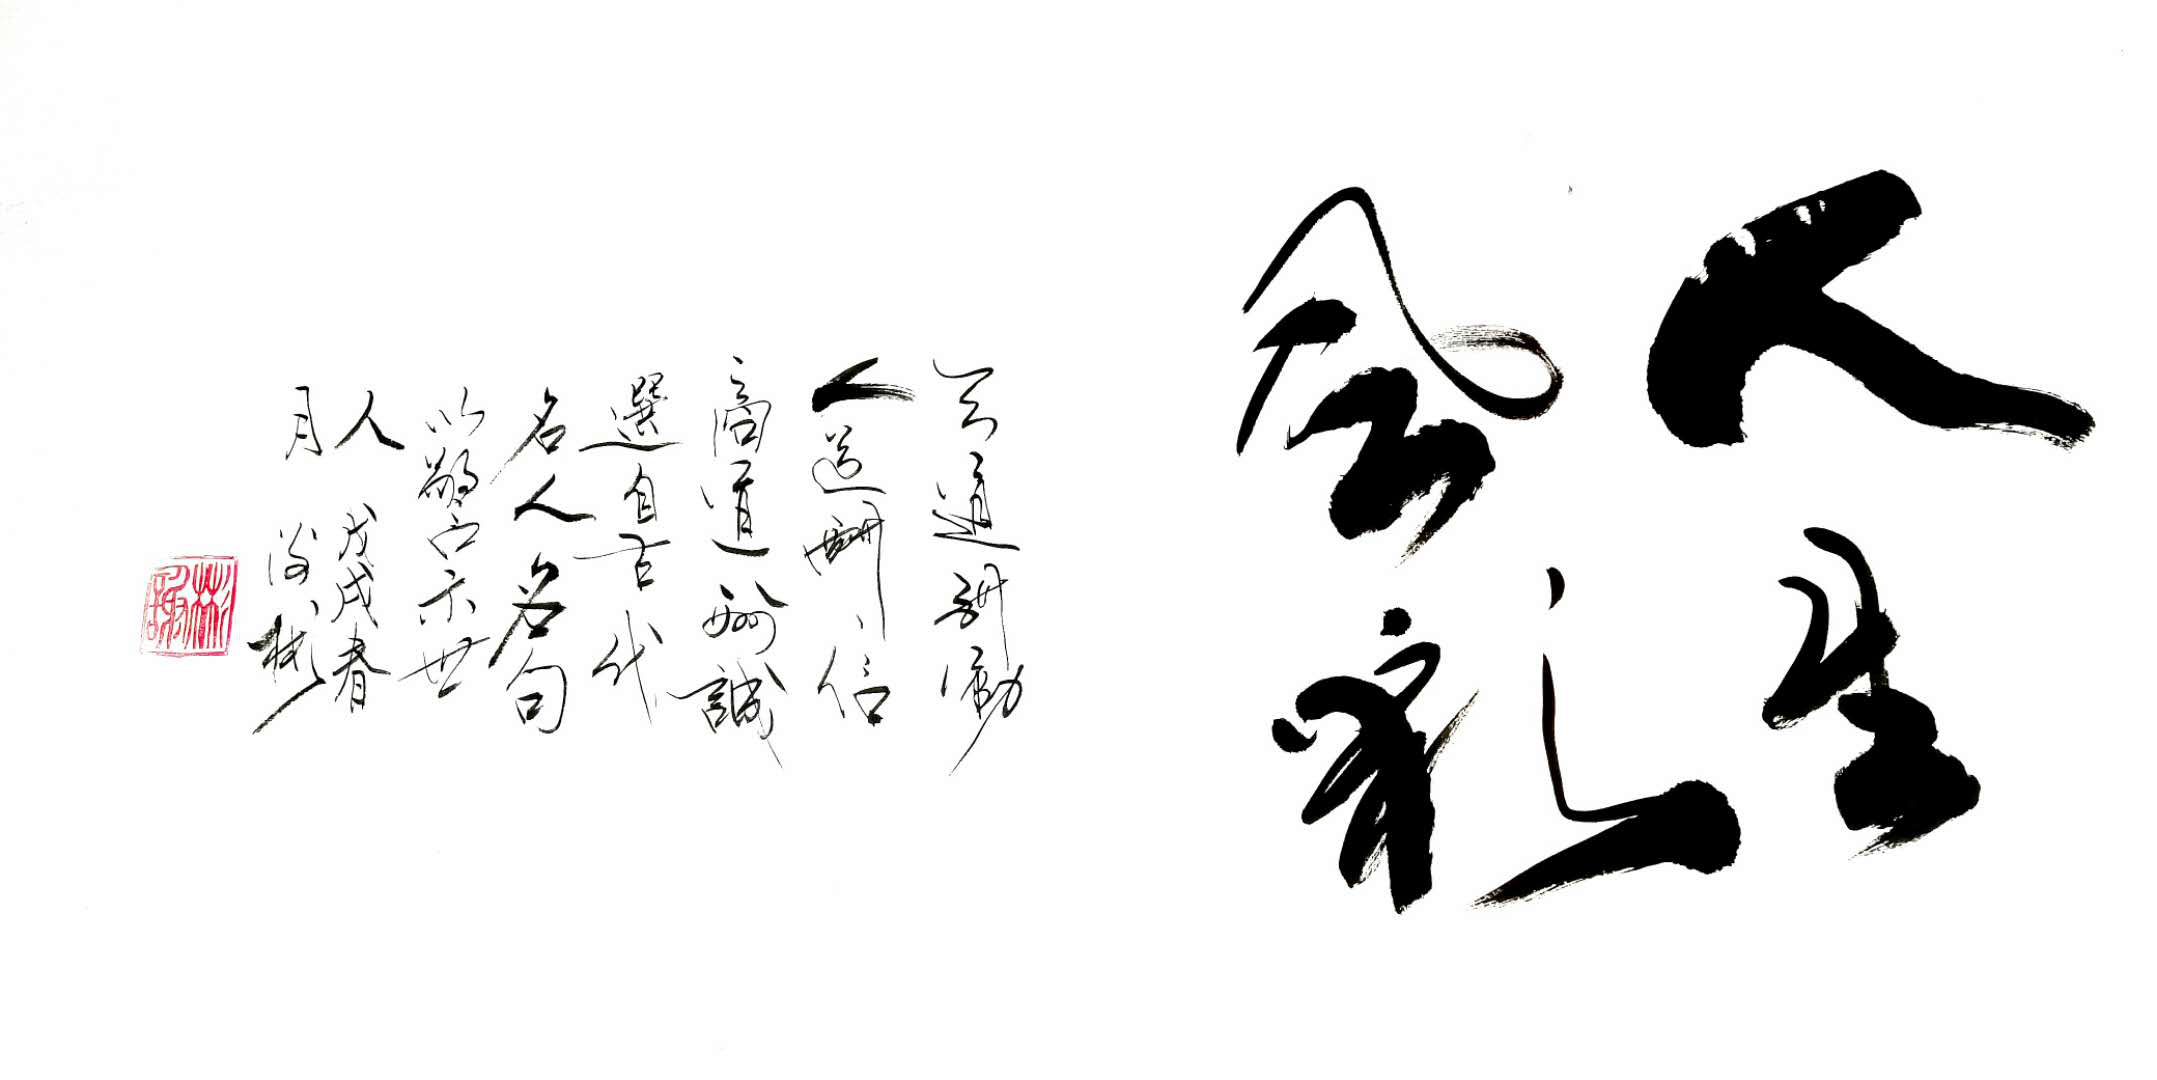 人生
風
天道酬勤
人道酬信
商道酬誠
選自古代
名人名句
以警示世
人 戊戌春
月 彬